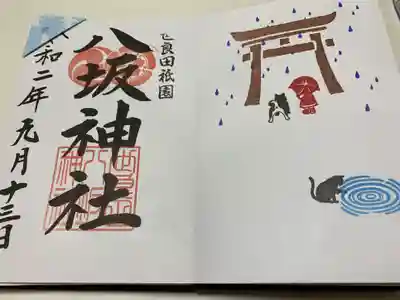 世良田祇園
八坂神社
令和二年六月十三日